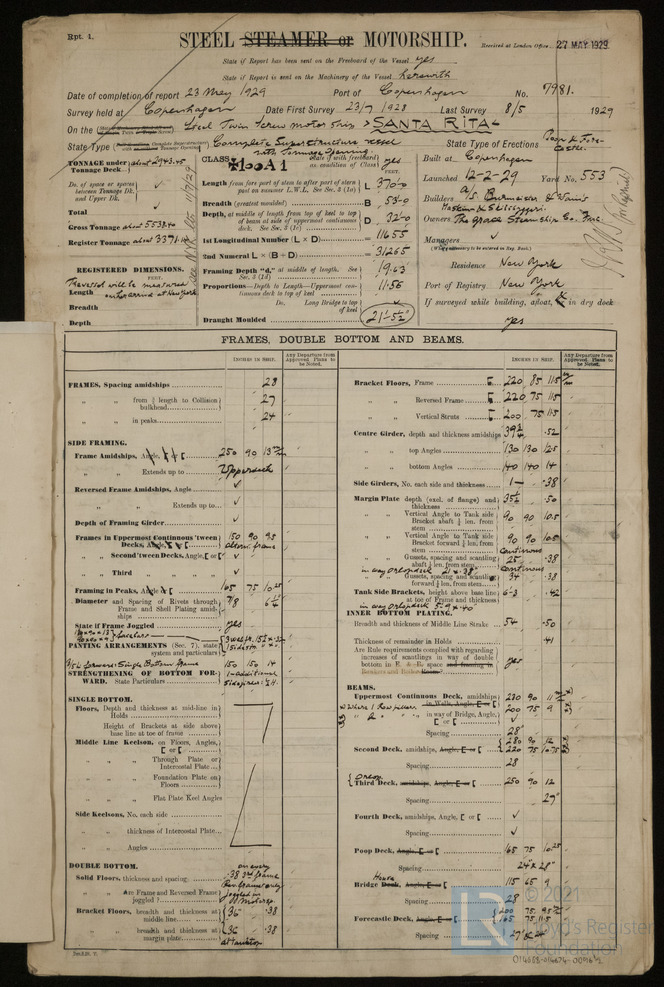 Rpt. 1.
STEEL STEAMER or MOTORSHIP.
Received at London Office 27 MAY 1929
State if Report has been sent on the Freeboard of the Vessel yes
State if Report is sent on the Machinery of the Vessel herewith
Date of completion of report 23 May 1929 Port of Copenhagen No. 7981.
Survey held at Copenhagen Date First Survey 23/7 1928 Last Survey 8/5 1929
On the Steel Twin Screw motor ship "SANTA RITA"
State Type Complete Superstructure vessel with Tonnage Opening
State Type of Erections Poop & Fore-Castle.
TONNAGE under Tonnage Deck about 2943.45
Do. of space or spaces between Tonnage Dk. and Upper Dk.
Total
Gross Tonnage about 5538.40
Register Tonnage about 3371.12
REGISTERED DIMENSIONS.
FEET.
Length
Breadth
Depth
CLASS 100A1 State if with freeboard as condition of Class yes
FEET.
Length from fore part of stem to after part of stern post on summer L.W.L. See Sec. 3 (1a) L 370.0
Breadth (greatest moulded) B 53.0
Depth, at middle of length from top of keel to top of beam at side of uppermost continuous deck. See Sec. 3 (1c) D 32.0
1st Longitudinal Number (L × D) = 11655
2nd Numeral L × (B + D) = 31265
Framing Depth "d," at middle of length. See Sec. 3 (1d) 19.63
Proportions—Depth to Length—Uppermost continuous deck to top of keel 11.56
Do. Long Bridge to top of keel
Draught Moulded 21'-5½"
Built at Copenhagen
Launched 12-2-29 Yard No. 553
Builders A/S Burmeister & Wain's Maskin & Skibsbyggeri
Owners The Grace Steamship Co. Inc.
Managers
Residence New York
Port of Registry New York
If surveyed while building, afloat, or in dry dock
yes
FRAMES, DOUBLE BOTTOM AND BEAMS.
INCHES IN SHIP.
Any Departure from Approved Plans to be Noted.
INCHES IN SHIP.
Any Departure from Approved Plans to be Noted.
FRAMES, Spacing amidships 28
" " from ⅕ length to Collision bulkhead 27
" " in peaks 24
SIDE FRAMING.
Frame Amidships, Angle, [ or [ 250 90
" " Extends up to Upperdeck
Reversed Frame Amidships, Angle
" " " Extends up to
Depth of Framing Girder
Frames in Uppermost Continuous 'tween Decks, Angle, [ or [ 150 90 95
" " Second 'tween Decks, Angle, [ or [
" " Third " " "
Framing in Peaks, Angle or [ 165 75
Diameter and Spacing of Rivets through Frame and Shell Plating amidships 7/8
State if Frame Joggled yes
PANTING ARRANGEMENTS (Sec. 7), state system and particulars
STRENGTHENING OF BOTTOM FORWARD. State Particulars
SINGLE BOTTOM.
Floors, Depth and thickness at mid-line in Holds
" Height of Brackets at side above base line at toe of frame
Middle Line Keelson, on Floors, Angles, [ or [
" " " Through Plate or Intercostal Plate
" " " Foundation Plate on Floors
" " " Flat Plate Keel Angles
Side Keelsons, No. each side
" " thickness of Intercostal Plate
" " Angles
DOUBLE BOTTOM.
Solid Floors, thickness and spacing .38
" " Are Frame and Reversed Frame joggled?
Bracket Floors, breadth and thickness at middle line 36 .38
" " breadth and thickness at margin plate 36 .38
Bracket Floors, Frame 220 85 11.5
" " Reversed Frame 220 75 11.5
" " Vertical Struts 200 75 11.5
Centre Girder, depth and thickness amidships 39¼ .52
" " top Angles 130 130 12.5
" " bottom Angles 140 140 14
Side Girders, No. each side and thickness 1 .38
Margin Plate depth (excl. of flange) and thickness 35½ .50
" " Vertical Angle to Tank side Bracket abaft ¼ len. from stem 90 90 10.5
" " Vertical Angle to Tank side Bracket forward ¼ len. from stem 90 90 10.5
" " Gussets, spacing and scantling abaft ¼ len. from stem continuous .38
" " Gussets, spacing and scantling forward ¼ len. from stem continuous .38
Tank Side Brackets, height above base line at toe of Frame and thickness 6-3 .42
INNER BOTTOM PLATING.
Breadth and thickness of Middle Line Strake 54 .50
Thickness of remainder in Holds .41
Are Rule requirements complied with regarding increases of scantlings in way of double bottom in E. & B. space and framing in Bunkers and Boiler Room? yes
BEAMS.
Uppermost Continuous Deck, amidships 230 90
" " in way of Bridge, Angle, [ or [ 200 75 9
Spacing 28
Second Deck, amidships, Angle, [ or [ 220 75 10.75
Spacing 28
Third Deck, amidships, Angle, [ or [ 250 90 12
Spacing 29"
Fourth Deck, amidships, Angle, [ or [
Spacing
Poop Deck, Angle, [ or [ 165 75 10.25
Spacing 24" & 28"
Bridge House Deck, Angle, [ or [ 115 65 9
Spacing 28
Forecastle Deck, Angle, [ or [ 200 75
Spacing 27 & 24
© 2021
Lloyd's Register
Foundation
014688-014694-0096 1/2